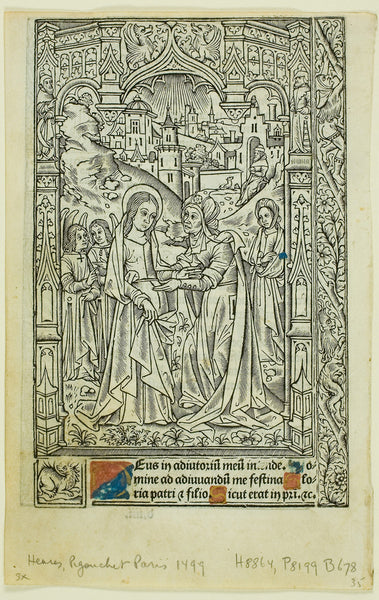 Eus in adiutoriũ meũ in de. Do
mine ad adiuuandũ me festina. Glo
ria patri ⁊ filio. Sicut erat in pri. ⁊c.
Heures, Pigouchet Paris 1499 H8864, P8199 B678
3x 35